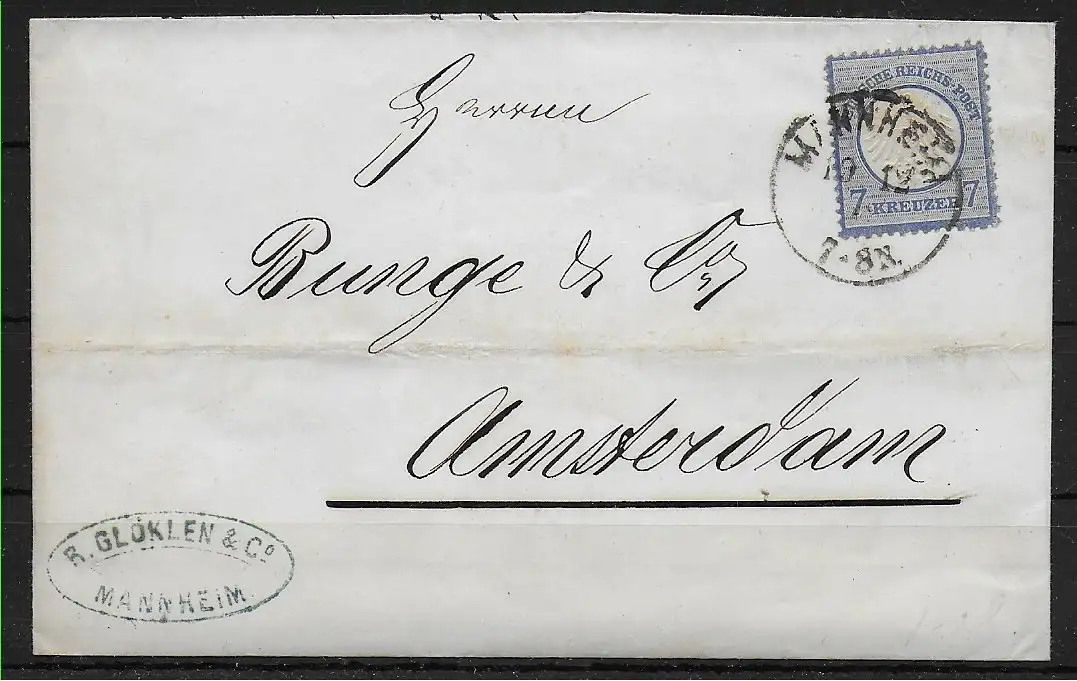 Herren
Bunge & Co
Amsterdam
CHE REICHS-POST
7 KREUZER 7
MANNHEIM
12
7-8N.
R. GLÖKLEN & Co
MANNHEIM.